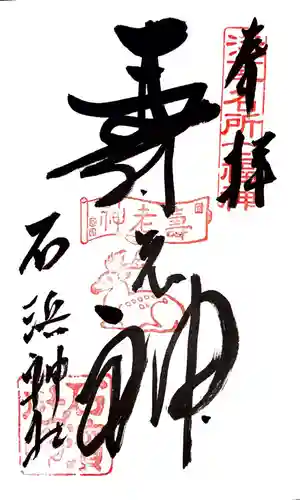 奉拝
浅草名所七福神
寿老神
壽老神
石浜神社